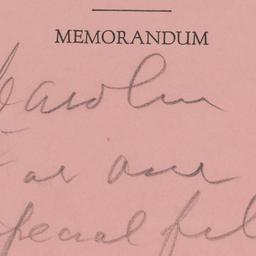 MEMORANDUM
Carolm
For our
special fil